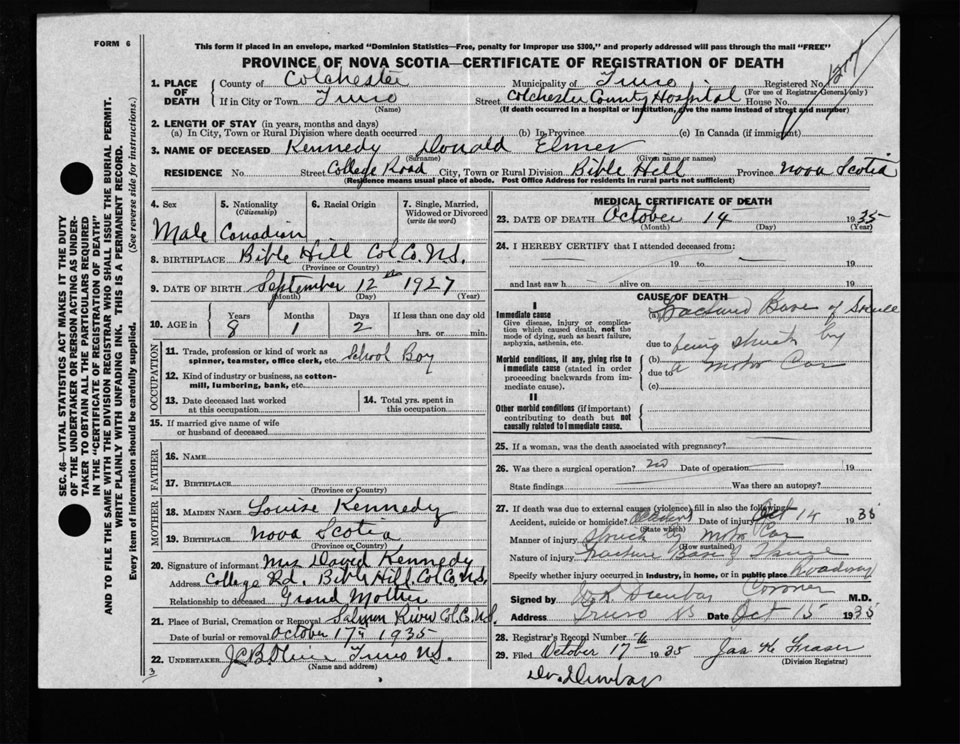 FORM 6
This form if placed in an envelope, marked "Dominion Statistics—Free, penalty for improper use $300," and properly addressed will pass through the mail "FREE"
PROVINCE OF NOVA SCOTIA—CERTIFICATE OF REGISTRATION OF DEATH
1. PLACE OF DEATH County of Colchester Municipality of Truro Registered No.
(For use of Registrar General only)
If in City or Town Truro Street Colchester County Hospital House No.
(Name) (If death occurred in a hospital or institution, give the name instead of street and number)
2. LENGTH OF STAY (in years, months and days)
(a) In City, Town or Rural Division where death occurred (b) In Province (c) In Canada (if immigrant)
3. NAME OF DECEASED Kennedy Donald Elmer
(Surname) (Given name or names)
RESIDENCE No. Street College Road City, Town or Rural Division Bible Hill Province Nova Scotia
(Residence means usual place of abode. Post Office Address for residents in rural parts not sufficient)
4. Sex Male
5. Nationality (Citizenship) Canadian
6. Racial Origin
7. Single, Married, Widowed or Divorced (write the word)
8. BIRTHPLACE Bible Hill Col. Co. N.S.
(Province or Country)
9. DATE OF BIRTH September 12th 1927
(Month) (Day) (Year)
10. AGE in Years Months Days If less than one day old
8 1 2 hrs. or min.
OCCUPATION
11. Trade, profession or kind of work as spinner, teamster, office clerk, etc. School Boy
12. Kind of industry or business, as cotton-mill, lumbering, bank, etc.
13. Date deceased last worked at this occupation
14. Total yrs. spent in this occupation
15. If married give name of wife or husband of deceased
FATHER
16. NAME
17. BIRTHPLACE
(Province or Country)
MOTHER
18. MAIDEN NAME Louise Kennedy
19. BIRTHPLACE Nova Scotia
(Province or Country)
20. Signature of informant Mrs David Kennedy
Address College Rd. Bible Hill, Col. Co. N.S.
Relationship to deceased Grand Mother
21. Place of Burial, Cremation or Removal Salmon River Col. Co. N.S.
Date of burial or removal October 17th 1935
22. UNDERTAKER Truro N.S.
(Name and address)
3
MEDICAL CERTIFICATE OF DEATH
23. DATE OF DEATH October 14 1935
(Month) (Day) (Year)
24. I HEREBY CERTIFY that I attended deceased from:
19 to 19
and last saw h alive on 19
CAUSE OF DEATH
I
Immediate cause
Give disease, injury or complication which caused death, not the mode of dying, such as heart failure, asphyxia, asthenia, etc.
(a) Fractured Base of Skull
due to being struck by
Morbid conditions, if any, giving rise to immediate cause (stated in order proceeding backwards from immediate cause).
(b) a Motor Car
due to
(c)
II
Other morbid conditions (if important) contributing to death but not causally related to immediate cause.
25. If a woman, was the death associated with pregnancy?
26. Was there a surgical operation? no Date of operation 19
State findings Was there an autopsy?
27. If death was due to external causes (violence) fill in also the following:
Accident, suicide or homicide? Accident Date of injury Oct 14 1935
(State which)
Manner of injury Struck by Motor Car
(How sustained)
Nature of injury Fracture Base of
Specify whether injury occurred in industry, in home, or in public place Roadway
Signed by Dunbar Coroner M.D.
Address Truro NS Date Oct 15 1935
28. Registrar's Record Number
29. Filed October 17th 1935 Jas H Fraser
(Division Registrar)
Dr. Dunbar
SEC. 46—VITAL STATISTICS ACT MAKES IT THE DUTY
OF THE UNDERTAKER OR PERSON ACTING AS UNDER-
TAKER TO OBTAIN ALL THE PARTICULARS REQUIRED
IN THE "CERTIFICATE OF REGISTRATION OF DEATH"
AND TO FILE THE SAME WITH THE DIVISION REGISTRAR WHO SHALL ISSUE THE BURIAL PERMIT.
WRITE PLAINLY WITH UNFADING INK. THIS IS A PERMANENT RECORD.
Every item of information should be carefully supplied. (See reverse side for instructions.)